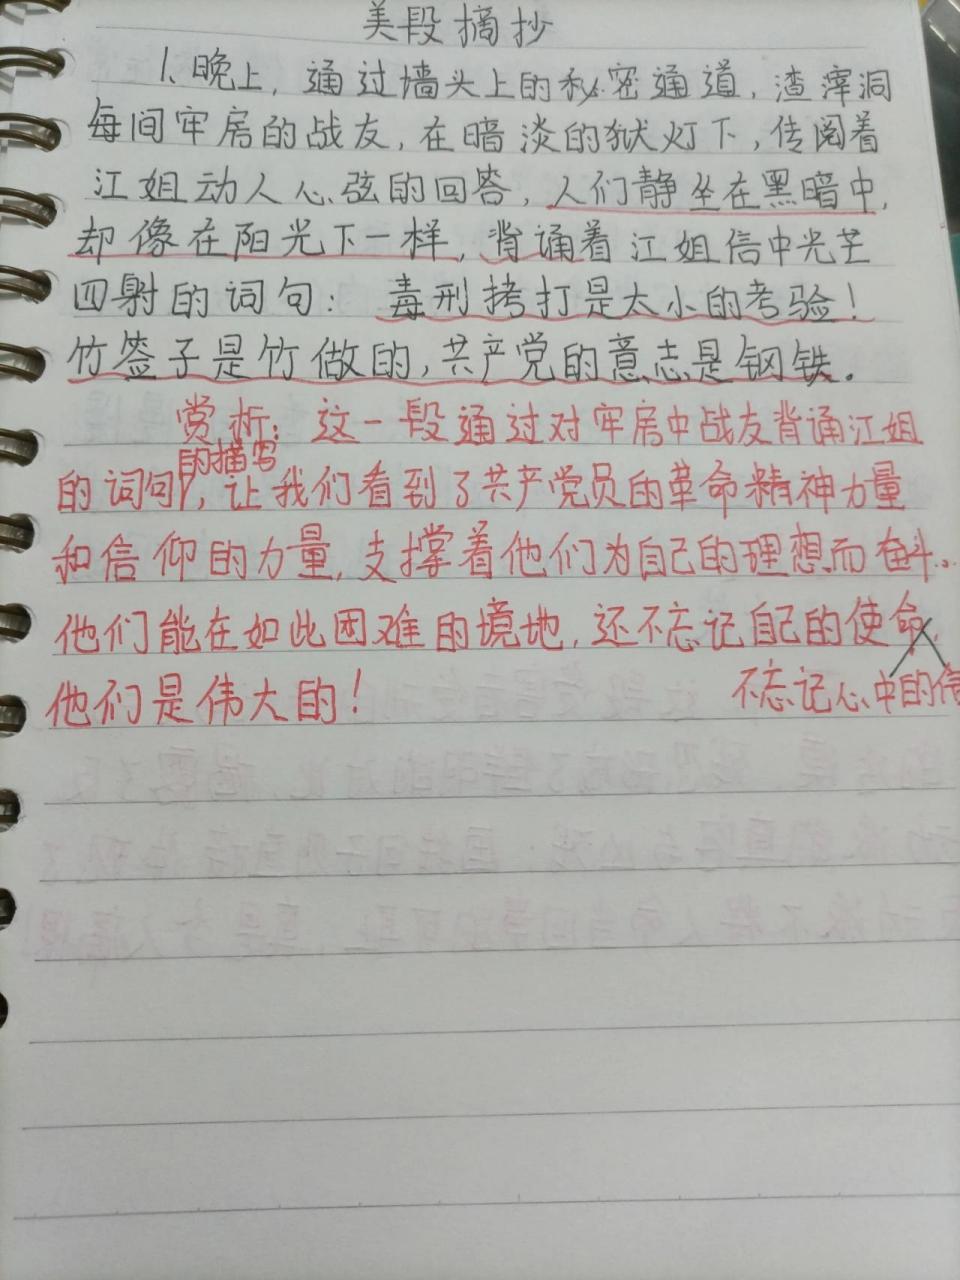 美段摘抄
1、晚上，通过墙头上的秘密通道，渣滓洞
每间牢房的战友，在暗淡的狱灯下，传阅着
江姐动人心弦的回答，人们静坐在黑暗中，
却像在阳光下一样，背诵着江姐信中光芒
四射的词句：毒刑拷打是太小的考验！
竹签子是竹做的，共产党的意志是钢铁。
赏析：这一段通过对牢房中战友背诵江姐
的词句的描写，让我们看到了共产党员的革命精神力量
和信仰的力量，支撑着他们为自己的理想而奋斗…
他们能在如此困难的境地，还不忘记自己的使命，
不忘记心中的信
他们是伟大的！